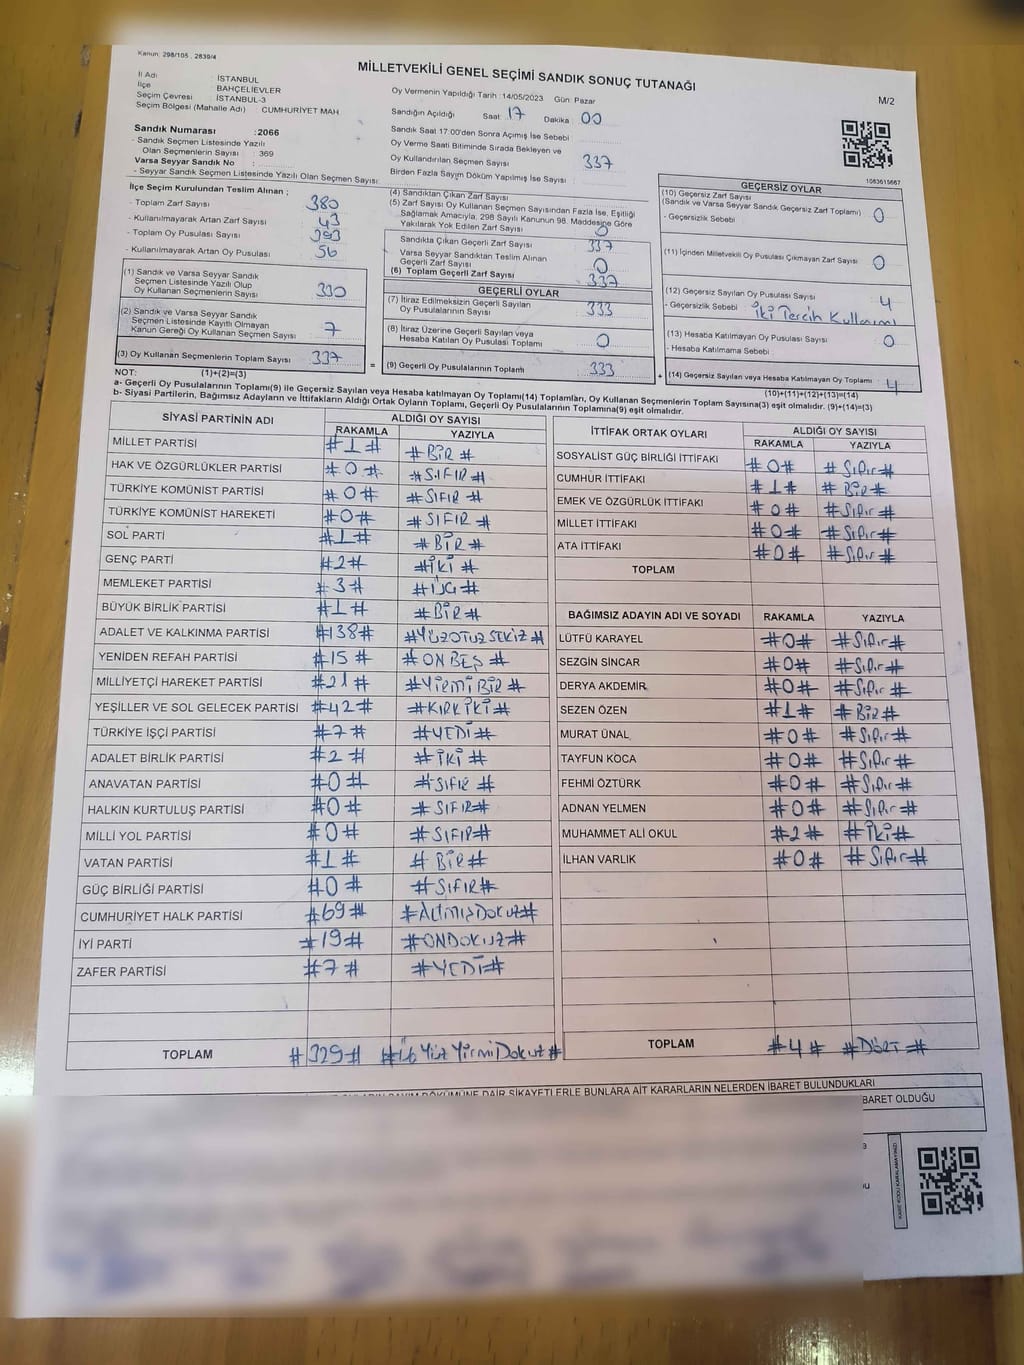 Kanun: 298/105 , 2839/4
MİLLETVEKİLİ GENEL SEÇİMİ SANDIK SONUÇ TUTANAĞI
M/2
İl Adı : İSTANBUL
İlçe : BAHÇELİEVLER
Seçim Çevresi : İSTANBUL-3
Seçim Bölgesi (Mahalle Adı) CUMHURİYET MAH
Oy Vermenin Yapıldığı Tarih :14/05/2023 Gün: Pazar
Sandığın Açıldığı Saat 17 Dakika 00
Sandık Saat 17:00'den Sonra Açımış İse Sebebi
Oy Verme Saati Bitiminde Sırada Bekleyen ve
Oy Kullandırılan Seçmen Sayısı 337
Birden Fazla Sayım Döküm Yapılmış İse Sayısı
1083615667
Sandık Numarası :2066
- Sandık Seçmen Listesinde Yazılı
Olan Seçmenlerin Sayısı : 369
Varsa Seyyar Sandık No :
- Seyyar Sandık Seçmen Listesinde Yazılı Olan Seçmen Sayısı:
İlçe Seçim Kurulundan Teslim Alınan ;
- Toplam Zarf Sayısı 380
- Kullanılmayarak Artan Zarf Sayısı 43
- Toplam Oy Pusulası Sayısı 393
- Kullanılmayarak Artan Oy Pusulası 56
(1) Sandık ve Varsa Seyyar Sandık
Seçmen Listesinde Yazılı Olup
Oy Kullanan Seçmenlerin Sayısı 330
(2) Sandık ve Varsa Seyyar Sandık
Seçmen Listesinde Kayıtlı Olmayan
Kanun Gereği Oy Kullanan Seçmen Sayısı 7
(3) Oy Kullanan Seçmenlerin Toplam Sayısı 337
(4) Sandıktan Çıkan Zarf Sayısı
(5) Zarf Sayısı Oy Kullanan Seçmen Sayısından Fazla İse, Eşitliği
Sağlamak Amacıyla, 298 Sayılı Kanunun 98. Maddesine Göre
Yakılarak Yok Edilen Zarf Sayısı 0
Sandıkta Çıkan Geçerli Zarf Sayısı 337
Varsa Seyyar Sandıktan Teslim Alınan
Geçerli Zarf Sayısı 0
(6) Toplam Geçerli Zarf Sayısı 337
GEÇERLİ OYLAR
(7) İtiraz Edilmeksizin Geçerli Sayılan
Oy Pusulalarının Sayısı 333
(8) İtiraz Üzerine Geçerli Sayılan veya
Hesaba Katılan Oy Pusulası Toplamı 0
= (9) Geçerli Oy Pusulalarının Toplamı 333
GEÇERSİZ OYLAR
(10) Geçersiz Zarf Sayısı
(Sandık ve Varsa Seyyar Sandık Geçersiz Zarf Toplamı) 0
- Geçersizlik Sebebi
(11) İçinden Milletvekili Oy Pusulası Çıkmayan Zarf Sayısı 0
(12) Geçersiz Sayılan Oy Pusulası Sayısı 4
- Geçersizlik Sebebi İki Tercih Kullanımı
(13) Hesaba Katılmayan Oy Pusulası Sayısı 0
- Hesaba Katılmama Sebebi
+ (14) Geçersiz Sayılan veya Hesaba Katılmayan Oy Toplamı 4
NOT: (1)+(2)=(3) (10)+(11)+(12)+(13)=(14)
a- Geçerli Oy Pusulalarının Toplamı(9) ile Geçersiz Sayılan veya Hesaba katılmayan Oy Toplamı(14) Toplamları, Oy Kullanan Seçmenlerin Toplam Sayısına(3) eşit olmalıdır. (9)+(14)=(3)
b- Siyasi Partilerin, Bağımsız Adayların ve İttifakların Aldığı Ortak Oyların Toplamı, Geçerli Oy Pusulalarının Toplamına(9) eşit olmalıdır.
SİYASİ PARTİNİN ADI ALDIĞI OY SAYISI
RAKAMLA YAZIYLA
MİLLET PARTİSİ #1# #BİR#
HAK VE ÖZGÜRLÜKLER PARTİSİ #0# #SIFIR#
TÜRKİYE KOMÜNİST PARTİSİ #0# #SIFIR#
TÜRKİYE KOMÜNİST HAREKETİ #0# #SIFIR#
SOL PARTİ #1# #BİR#
GENÇ PARTİ #2# #İKİ#
MEMLEKET PARTİSİ #3# #ÜÇ#
BÜYÜK BİRLİK PARTİSİ #1# #BİR#
ADALET VE KALKINMA PARTİSİ #138# #YÜZOTUZSEKİZ#
YENİDEN REFAH PARTİSİ #15# #ONBEŞ#
MİLLİYETÇİ HAREKET PARTİSİ #21# #YİRMİBİR#
YEŞİLLER VE SOL GELECEK PARTİSİ #42# #KIRKİKİ#
TÜRKİYE İŞÇİ PARTİSİ #7# #YEDİ#
ADALET BİRLİK PARTİSİ #2# #İKİ#
ANAVATAN PARTİSİ #0# #SIFIR#
HALKIN KURTULUŞ PARTİSİ #0# #SIFIR#
MİLLİ YOL PARTİSİ #0# #SIFIR#
VATAN PARTİSİ #1# #BİR#
GÜÇ BİRLİĞİ PARTİSİ #0# #SIFIR#
CUMHURİYET HALK PARTİSİ #69# #ALTMIŞDOKUZ#
İYİ PARTİ #19# #ONDOKUZ#
ZAFER PARTİSİ #7# #YEDİ#
TOPLAM #329# #ÜçYüzYirmiDokuz#
İTTİFAK ORTAK OYLARI ALDIĞI OY SAYISI
RAKAMLA YAZIYLA
SOSYALİST GÜÇ BİRLİĞİ İTTİFAKI #0# #Sıfır#
CUMHUR İTTİFAKI #1# #BİR#
EMEK VE ÖZGÜRLÜK İTTİFAKI #0# #Sıfır#
MİLLET İTTİFAKI #0# #Sıfır#
ATA İTTİFAKI #0# #Sıfır#
TOPLAM
BAĞIMSIZ ADAYIN ADI VE SOYADI RAKAMLA YAZIYLA
LÜTFÜ KARAYEL #0# #Sıfır#
SEZGİN SİNCAR #0# #Sıfır#
DERYA AKDEMİR #0# #Sıfır#
SEZEN ÖZEN #1# #BİR#
MURAT ÜNAL #0# #Sıfır#
TAYFUN KOCA #0# #Sıfır#
FEHMİ ÖZTÜRK #0# #Sıfır#
ADNAN YELMEN #0# #Sıfır#
MUHAMMET ALİ OKUL #2# #İKİ#
İLHAN VARLIK #0# #Sıfır#
TOPLAM #4# #DÖRT#
DÖKÜMÜNE DAİR ŞİKAYETLERLE BUNLARA AİT KARARLARIN NELERDEN İBARET BULUNDUKLARI
BARET OLDUĞU